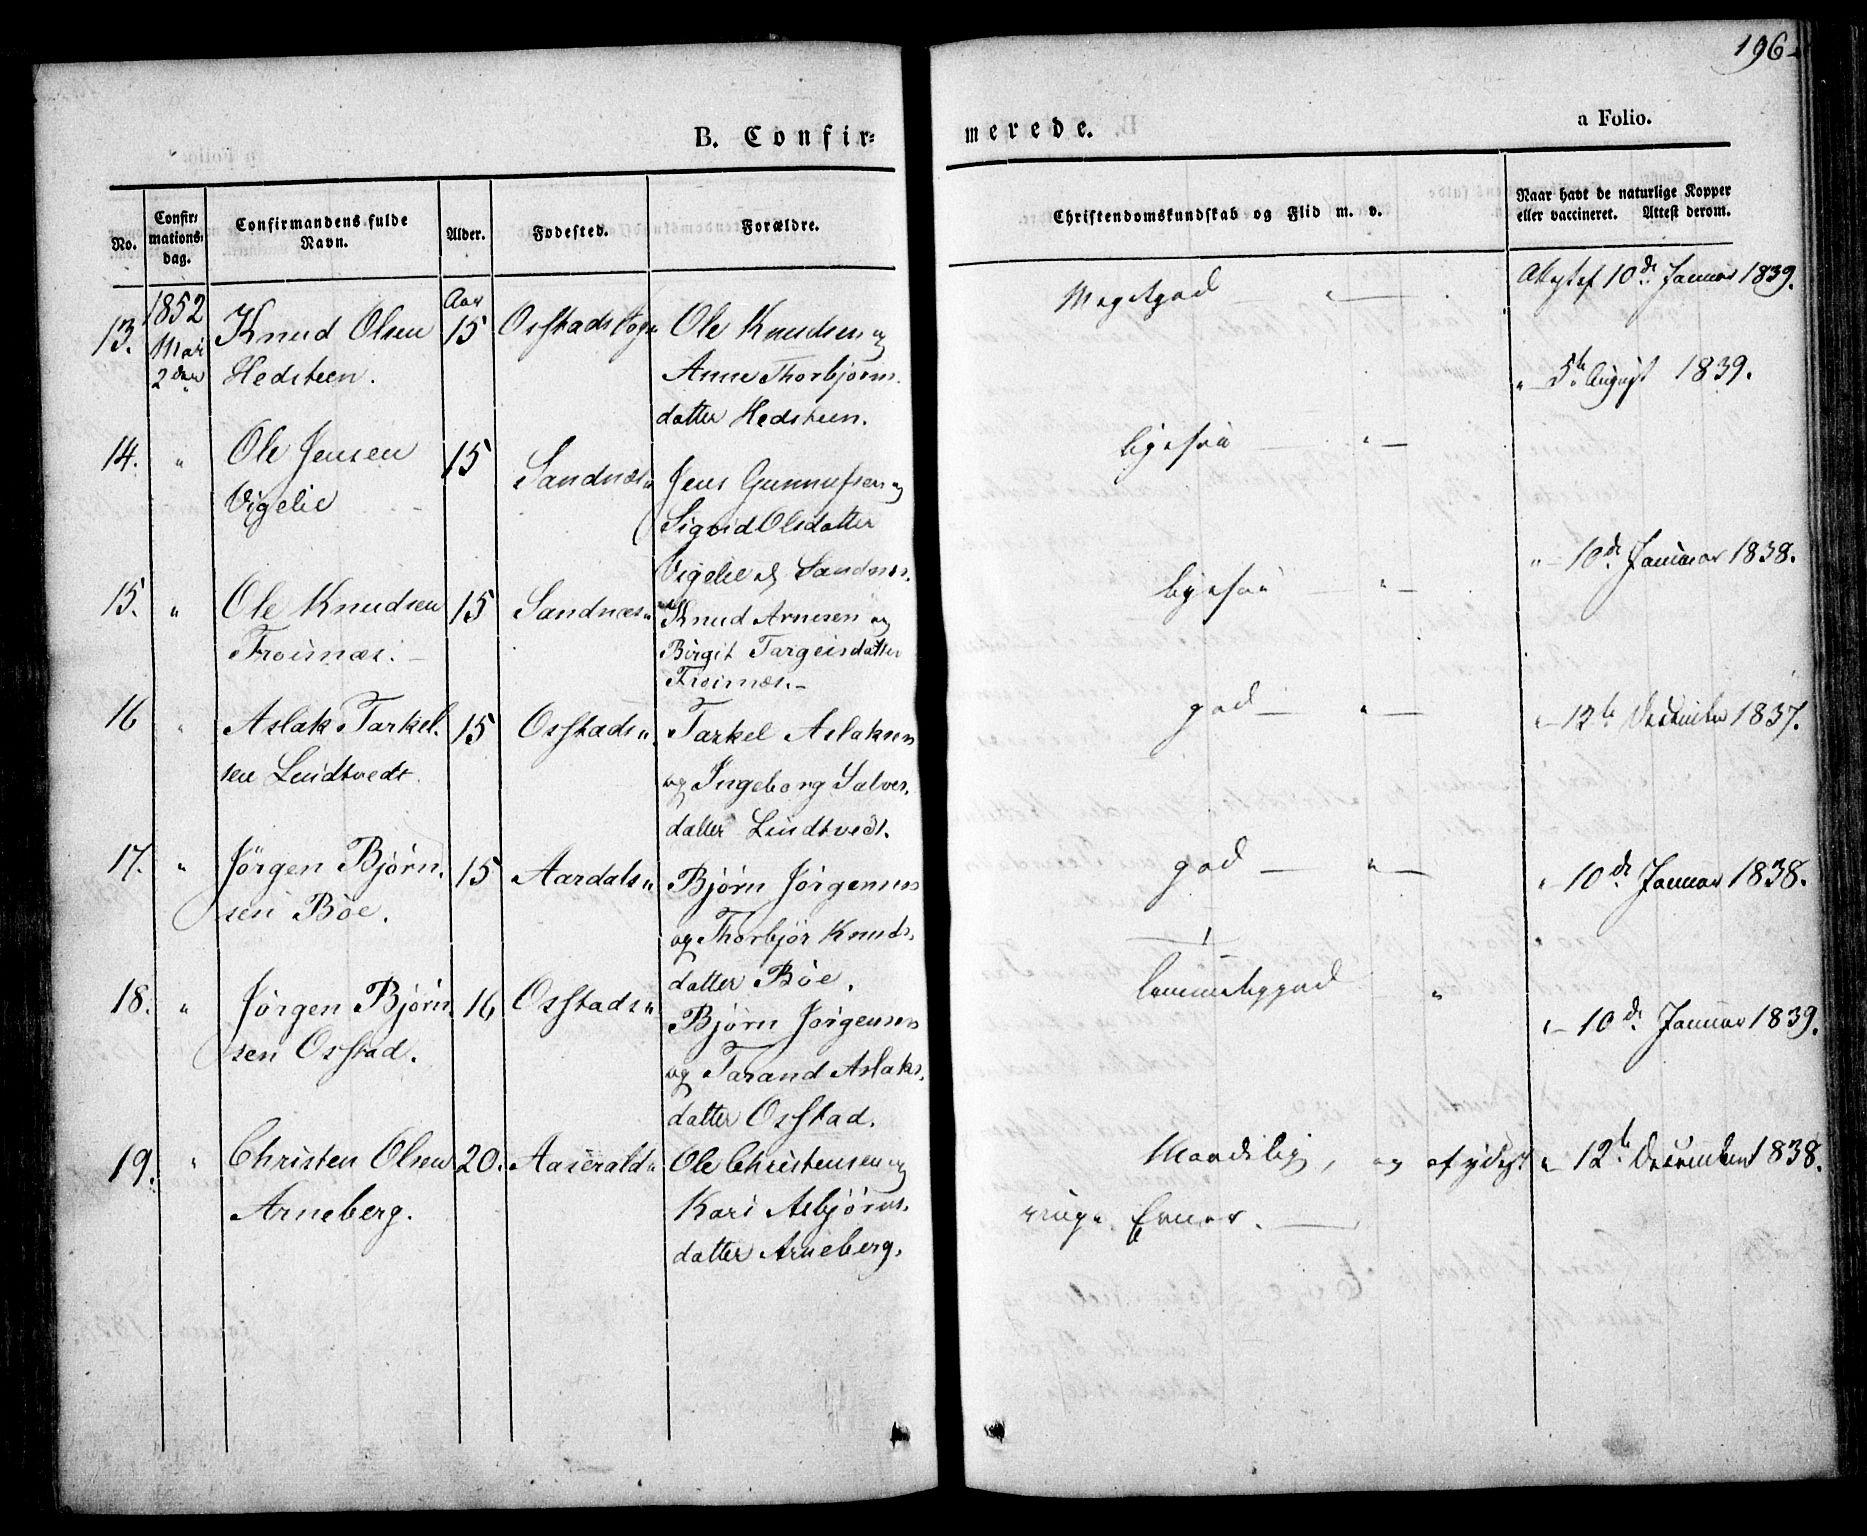 196
B. Confir=
merede.
a Folio.
No.
Confir=
mations=
dag.
Confirmandens fulde
Navn.
Alder.
Fødested.
Forældre.
Christendomskundskab og Flid m. v.
Naar havt de naturlige Kopper
eller vaccineret. Attest derom.
13.
1852
Mai
2den
Knud Olsen
Hedsteen.
Aar
15
Osstads Sogn
Ole Knudsen og
Anne Thorbjørns
datter Hedsteen.
Megetgod — " —
10de Januar 1839.
14.
"
Ole Jensen
Vigelie
15
Sandnæs "
Jens Gunnufsen og
Sigrid Olsdatter
Vigelie af Sandnæs.
ligesaa — " —
" — 5te August 1839.
15.
"
Ole Knudsen
Froisnæs. —
15
Sandnæs "
Knud Arnesen og
Birgit Targeisdatter
Froisnæs. —
ligesaa — " —
" — 10de Januar 1838.
16
"
Aslak Tarkel.
sen Lindtvedt.
15
Osstads "
Tarkel Aslaksen
og Ingeborg Salves.
datter Lindtvedt.
god — " —
" — 12te December 1837.
17.
"
Jörgen Bjørn.
sen Böe.
15
Aardals "
Bjørn Jörgensen
og Thorbjör Knuds.
datter Böe.
god — " —
" 10de Januar 1838.
18.
"
Jörgen Bjørn
sen Osstad.
16
Osstads "
Bjørn Jörgensen
og Tarand Aslaks.
datter Osstad.
temmeliggod — "
" — 10de Januar 1839.
19.
"
Christen Olsen
Arneberg.
20.
Aaserald "
Ole Christensen og
Kari Asbjørns.
datter Arneberg.
Maadelig, og
" 12te December 1838.
ringe Evner. —